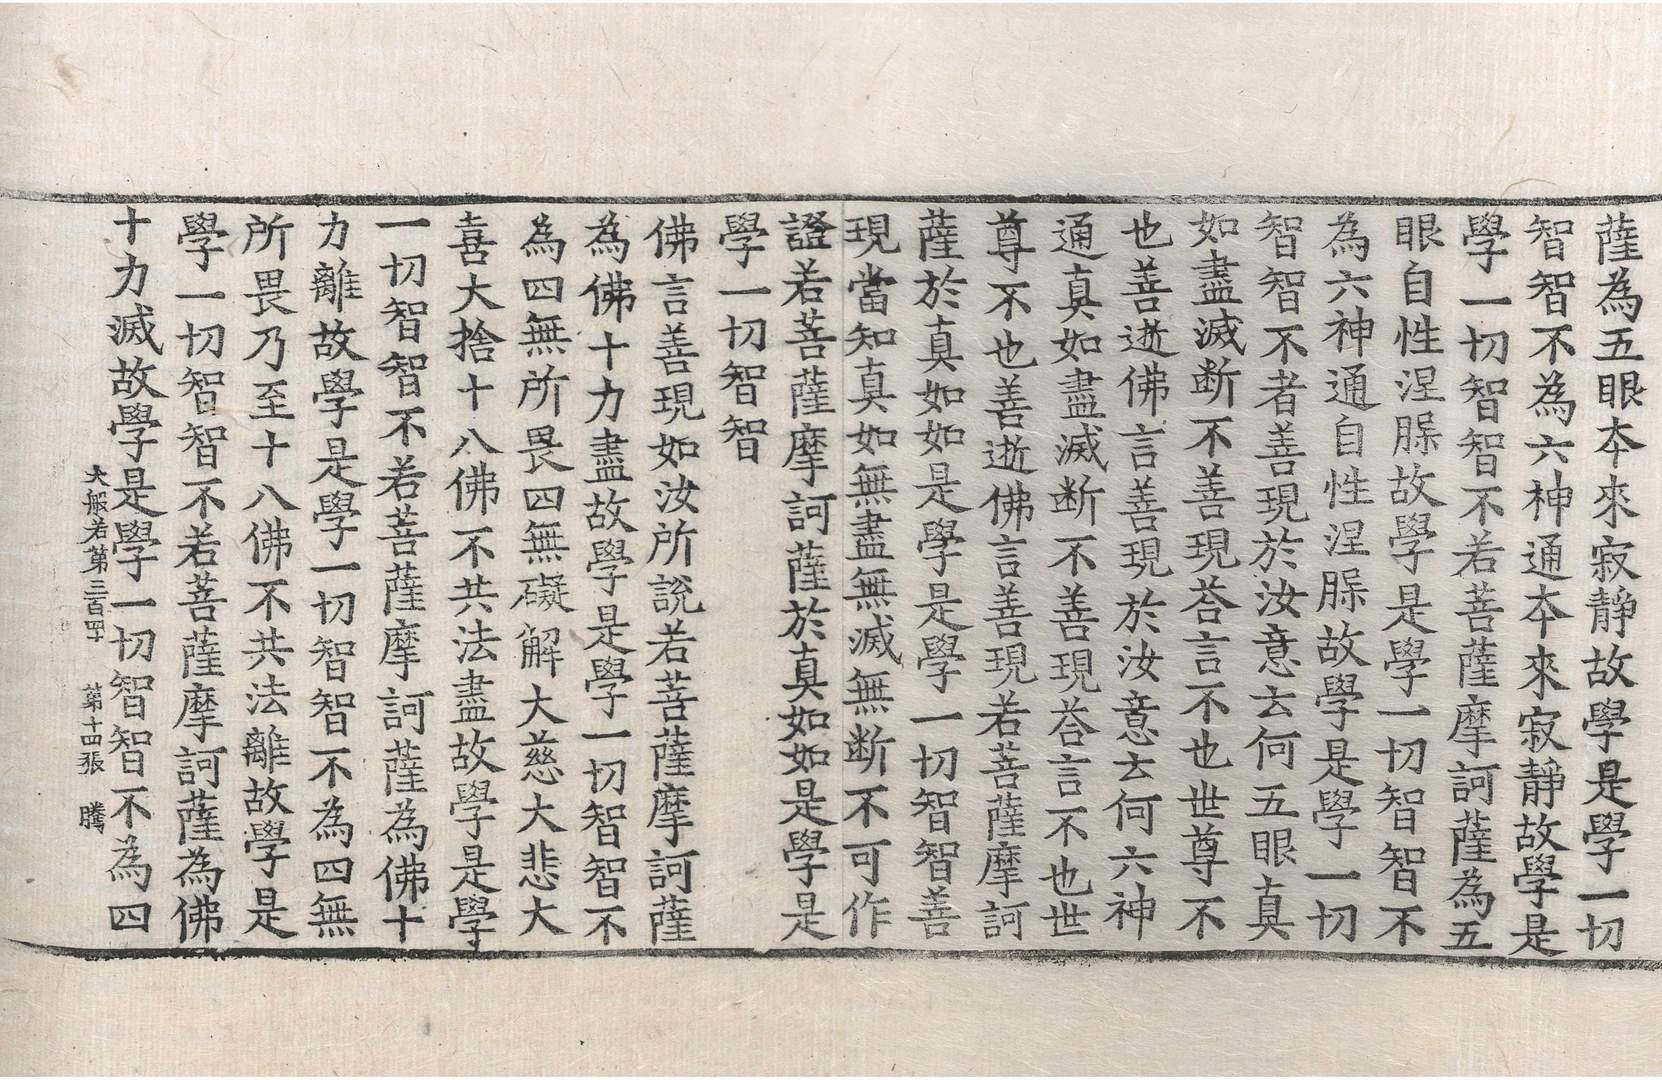 薩為五眼本來寂靜故學是學一切
智智不為六神通本來寂靜故學是
學一切智智不若菩薩摩訶薩為五
眼自性涅槃故學是學一切智智不
為六神通自性涅槃故學是學一切
智智不者善現於汝意云何五眼真
如盡滅断不善現荅言不也世尊不
也善逝佛言善現於汝意云何六神
通真如盡滅断不善現荅言不也世
尊不也善逝佛言善現若菩薩摩訶
薩於真如如是學是學一切智智善
現當知真如無盡無滅無断不可作
證若菩薩摩訶薩於真如如是學是
學一切智智
佛言善現如汝所說若菩薩摩訶薩
為佛十力盡故學是學一切智智不
為四無所畏四無礙解大慈大悲大
喜大捨十八佛不共法盡故學是學
一切智智不若菩薩摩訶薩為佛十
力離故學是學一切智智不為四無
所畏乃至十八佛不共法離故學是
學一切智智不若菩薩摩訶薩為佛
十力滅故學是學一切智智不為四
大般若第三百四十 第十四張 騰